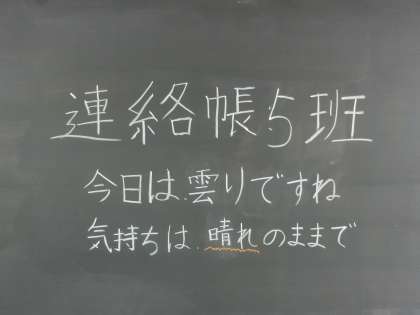 連絡帳5班
今日は.雲りですね
気持ちは.晴れのままで